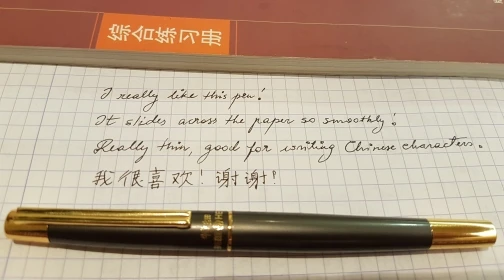 综合练习册
I really like this pen!
It slides across the paper so smoothly!
Really thin, good for writing Chinese characters.
我很喜欢！谢谢！